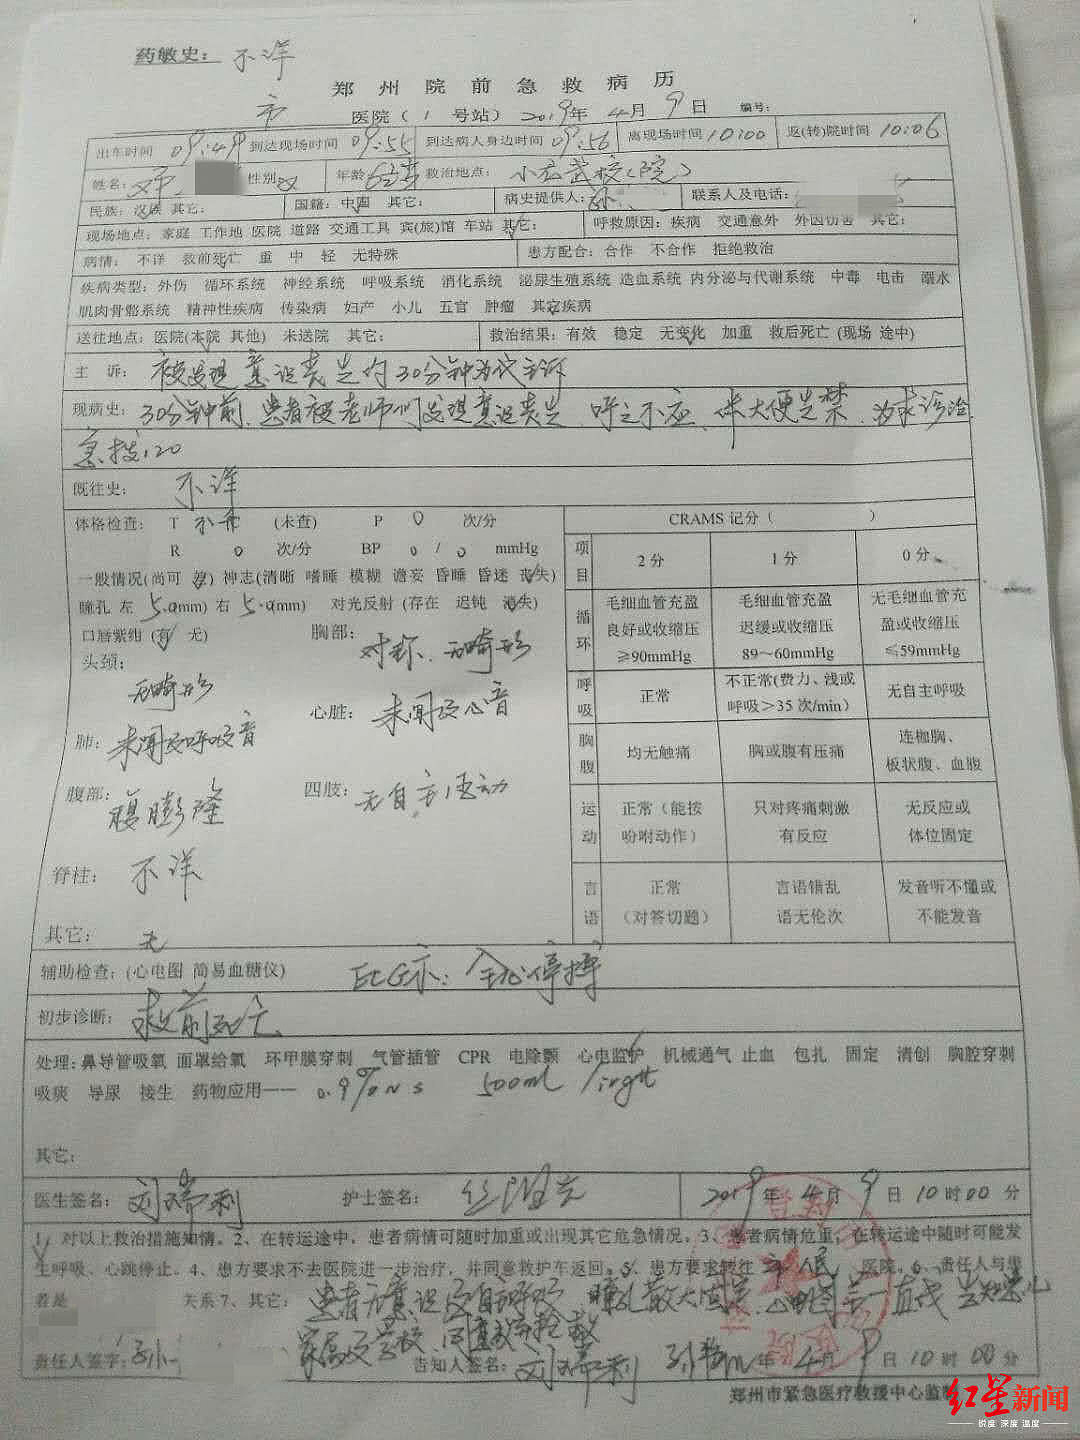 药敏史： 不详
郑州院前急救病历
市 医院（1 号站） 2019年 4月 9日 编号：
出车时间 09:49 到达现场时间 09:55 到达病人身边时间 09:56 离现场时间 10:00 返(转)院时间 10:06
姓名： 性别 年龄 救治地点： 小龙武校(院)
民族：汉族 其它： 国籍：中国 其它： 病史提供人： 联系人及电话：
现场地点：家庭 工作地 医院 道路 交通工具 宾(旅)馆 车站 其它： 呼救原因：疾病 交通意外 外因伤害 其它：
病情： 不详 救前死亡 重 中 轻 无特殊 患方配合：合作 不合作 拒绝救治
疾病类型：外伤 循环系统 神经系统 呼吸系统 消化系统 泌尿生殖系统 造血系统 内分泌与代谢系统 中毒 电击 溺水
肌肉骨骼系统 精神性疾病 传染病 妇产 小儿 五官 肿瘤 其它疾病
送往地点：医院(本院 其他) 未送院 其它： 救治结果：有效 稳定 无变化 加重 救后死亡 (现场 途中)
主 诉： 被发现意识丧失约30分钟为代主诉
现病史： 30分钟前，患者被老师们发现意识丧失，呼之不应，伴大便失禁，为求诊治
急拨120
既往史： 不详
体格检查： T (未查) P 0 次/分 CRAMS 记分（ ）
R 0 次/分 BP 0 / 0 mmHg 项目 2分 1分 0分
一般情况(尚可 差) 神志(清晰 嗜睡 模糊 谵妄 昏睡 昏迷 丧失)
瞳孔 左 5.0(mm) 右 5.0(mm) 对光反射 (存在 迟钝 消失) 循环 毛细血管充盈良好或收缩压≥90mmHg 毛细血管充盈迟缓或收缩压89～60mmHg 无毛细血管充盈或收缩压≤59mmHg
口唇紫绀 (有 无) 胸部： 对称，无畸形
头颈： 无畸形 呼吸 正常 不正常(费力、浅或呼吸>35次/min) 无自主呼吸
肺： 未闻及呼吸音 心脏： 未闻及心音 胸腹 均无触痛 胸或腹有压痛 连枷胸、板状腹、血腹
腹部： 腹膨隆 四肢： 无自主活动 运动 正常（能按吩咐动作） 只对疼痛刺激有反应 无反应或体位固定
脊柱： 不详 言语 正常（对答切题） 言语错乱语无伦次 发音听不懂或不能发音
其它： 无
辅助检查：(心电图 简易血糖仪) ECG示：全心停搏
初步诊断： 救前死亡
处理：鼻导管吸氧 面罩给氧 环甲膜穿刺 气管插管 CPR 电除颤 心电监护 机械通气 止血 包扎 固定 清创 胸腔穿刺
吸痰 导尿 接生 药物应用—— 0.9%NS 500ml ivgtt
其它：
医生签名： 刘瑞利 护士签名： 2019年 4月 9日 10时00分
1、对以上救治措施知情。2、在转运途中，患者病情可随时加重或出现其它危急情况。3、患者病情危重，在转运途中随时可能发
生呼吸、心跳停止。4、患方要求不去医院进一步治疗，并同意救护车返回。5、患方要求转往 市人民 医院。6、责任人与患
者是 关系 7、其它： 患者无意识及自主呼吸 瞳孔散大固定，心电图呈一直线 告知患儿
家属及学校，同意抢救
责任人签字： 告知人签名： 刘瑞利 年 4月 9日 10时00分
郑州市紧急医疗救援中心监制
红星新闻
锐度 深度 温度